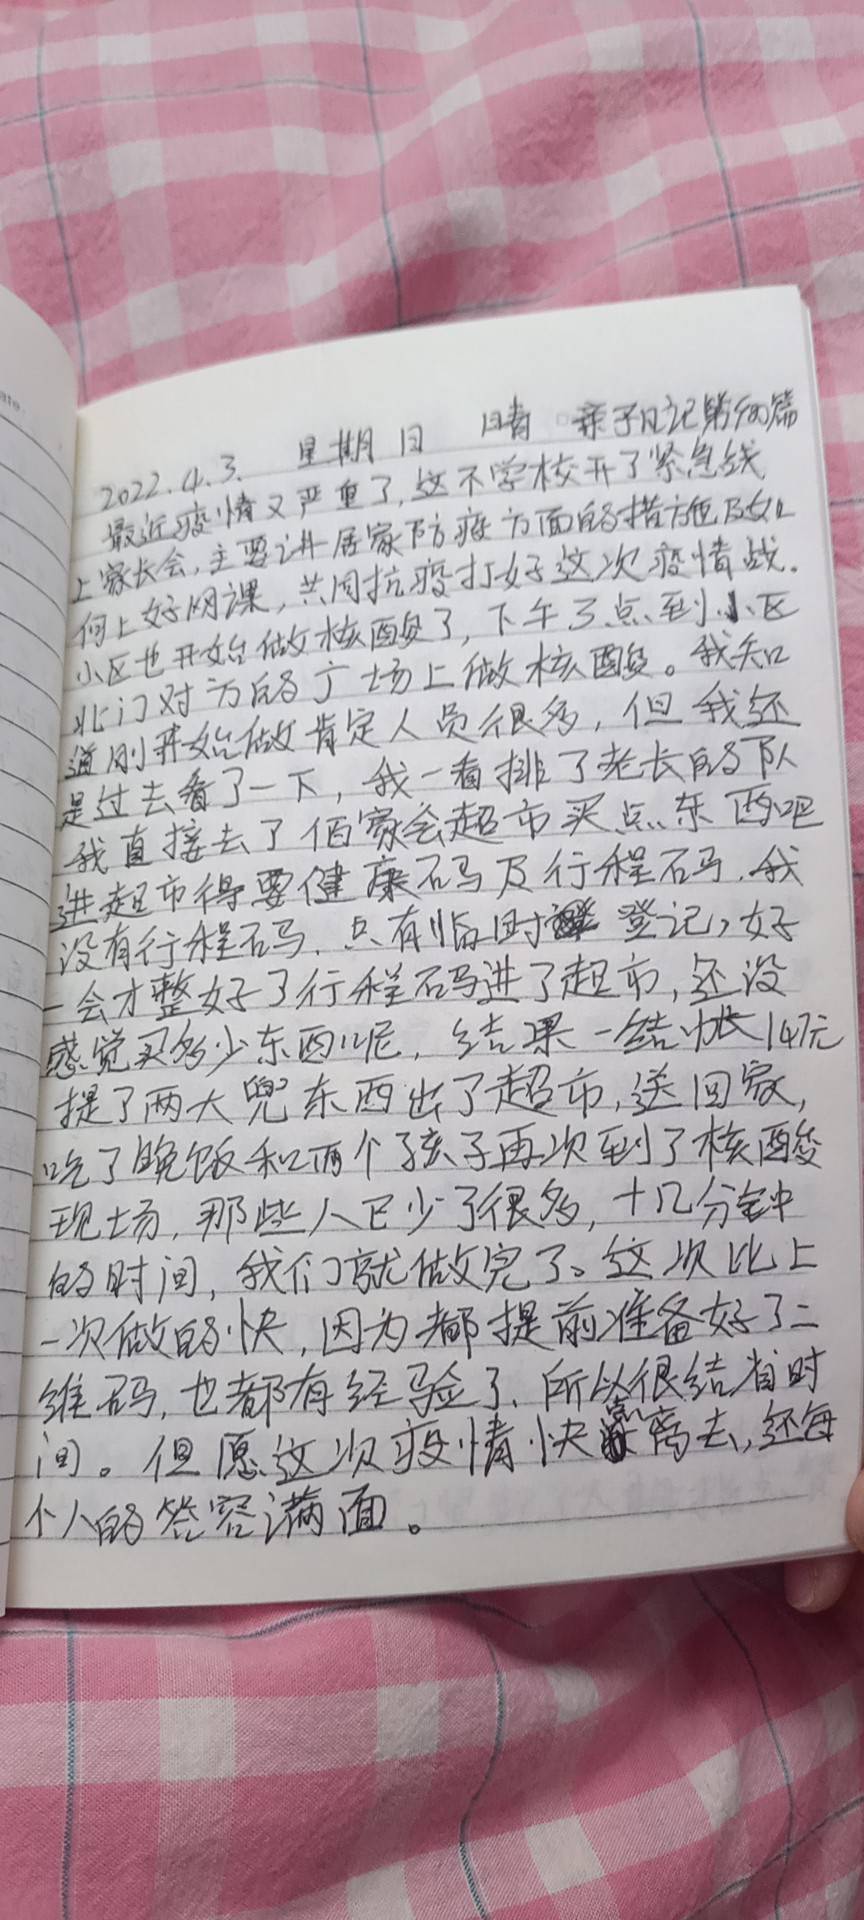 2022.4.3. 星期日 晴 亲子日记第 篇
最近疫情又严重了,这不学校开了紧急线
上家长会,主要讲居家防疫方面的措施及如
何上好网课,共同抗疫打好这次疫情战.
小区也开始做核酸了,下午3点到小小区
北门对方的广场上做核酸。我知
道刚开始做肯定人员很多,但我还
是过去看了一下,我一看排了老长的队
我直接去了佰家会超市买点东西吧
进超市得要健康码及行程码.我
没有行程码.只有临时 登记,好
一会才整好了行程码进了超市,还没
感觉买多少东西呢,结果一结帐147元
提了两大兜东西出了超市,送回家,
吃了晚饭和两个孩子再次到了核酸
现场,那些人已少了很多,十几分钟
的时间,我们就做完了。这次比上
一次做的快,因为都提前准备好了二
维码,也都有经验了.所以很结省时
间。但愿这次疫情快 离去,还每
个人的笑容满面。